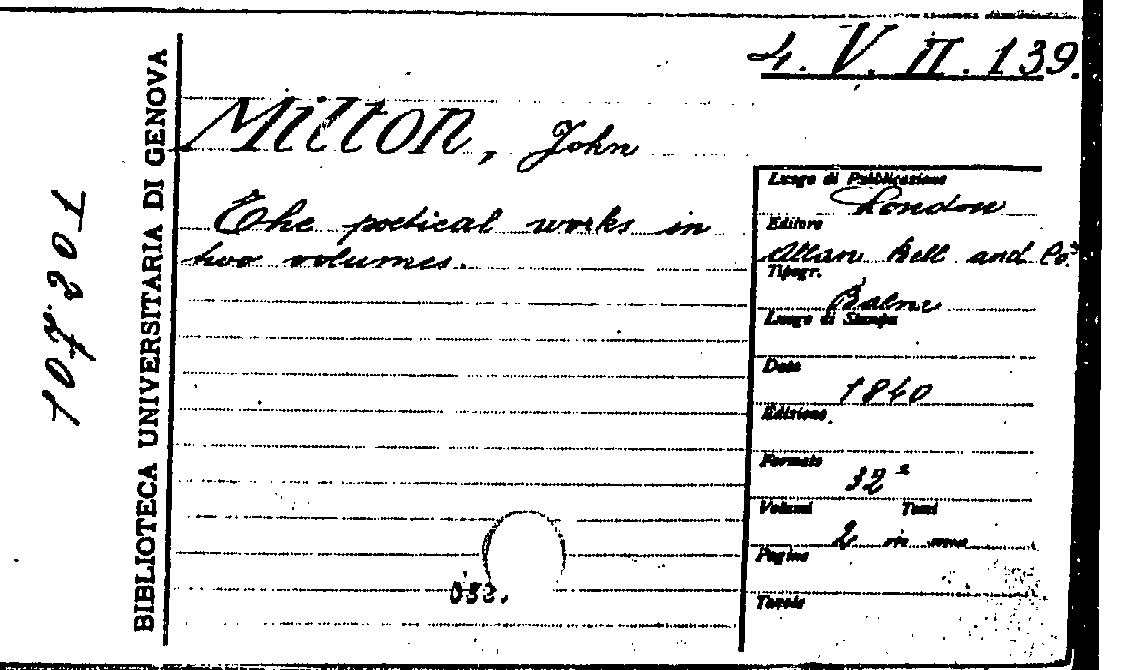 4. V. II. 139.
107201
BIBLIOTECA UNIVERSITARIA DI GENOVA
Milton, John
The poetical works in
two volumes.
Luogo di Pubblicazione
London
Editore
Allan Bell and Co.
Tipogr.
Balne
Luogo di Stampa
Data
1840
Edizione
Formato
32°
Volumi Tomi
2 in uno
Pagine
Tavole